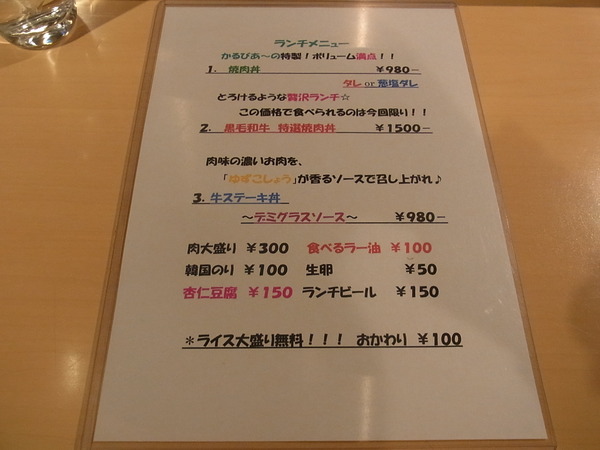 ランチメニュー
かるびあ～の特製！ボリューム満点！！
1. 焼肉丼 ￥980-
タレ or 葱塩ダレ
とろけるような贅沢ランチ☆
この価格で食べられるのは今回限り！！
2. 黒毛和牛 特選焼肉丼 ￥1500-
肉味の濃いお肉を、
「ゆずこしょう」が香るソースで召し上がれ♪
3. 牛ステーキ丼
～デミグラスソース～ ￥980-
肉大盛り ￥300 食べるラー油 ￥100
韓国のり ￥100 生卵 ￥50
杏仁豆腐 ￥150 ランチビール ￥150
＊ライス大盛り無料！！！ おかわり ￥100